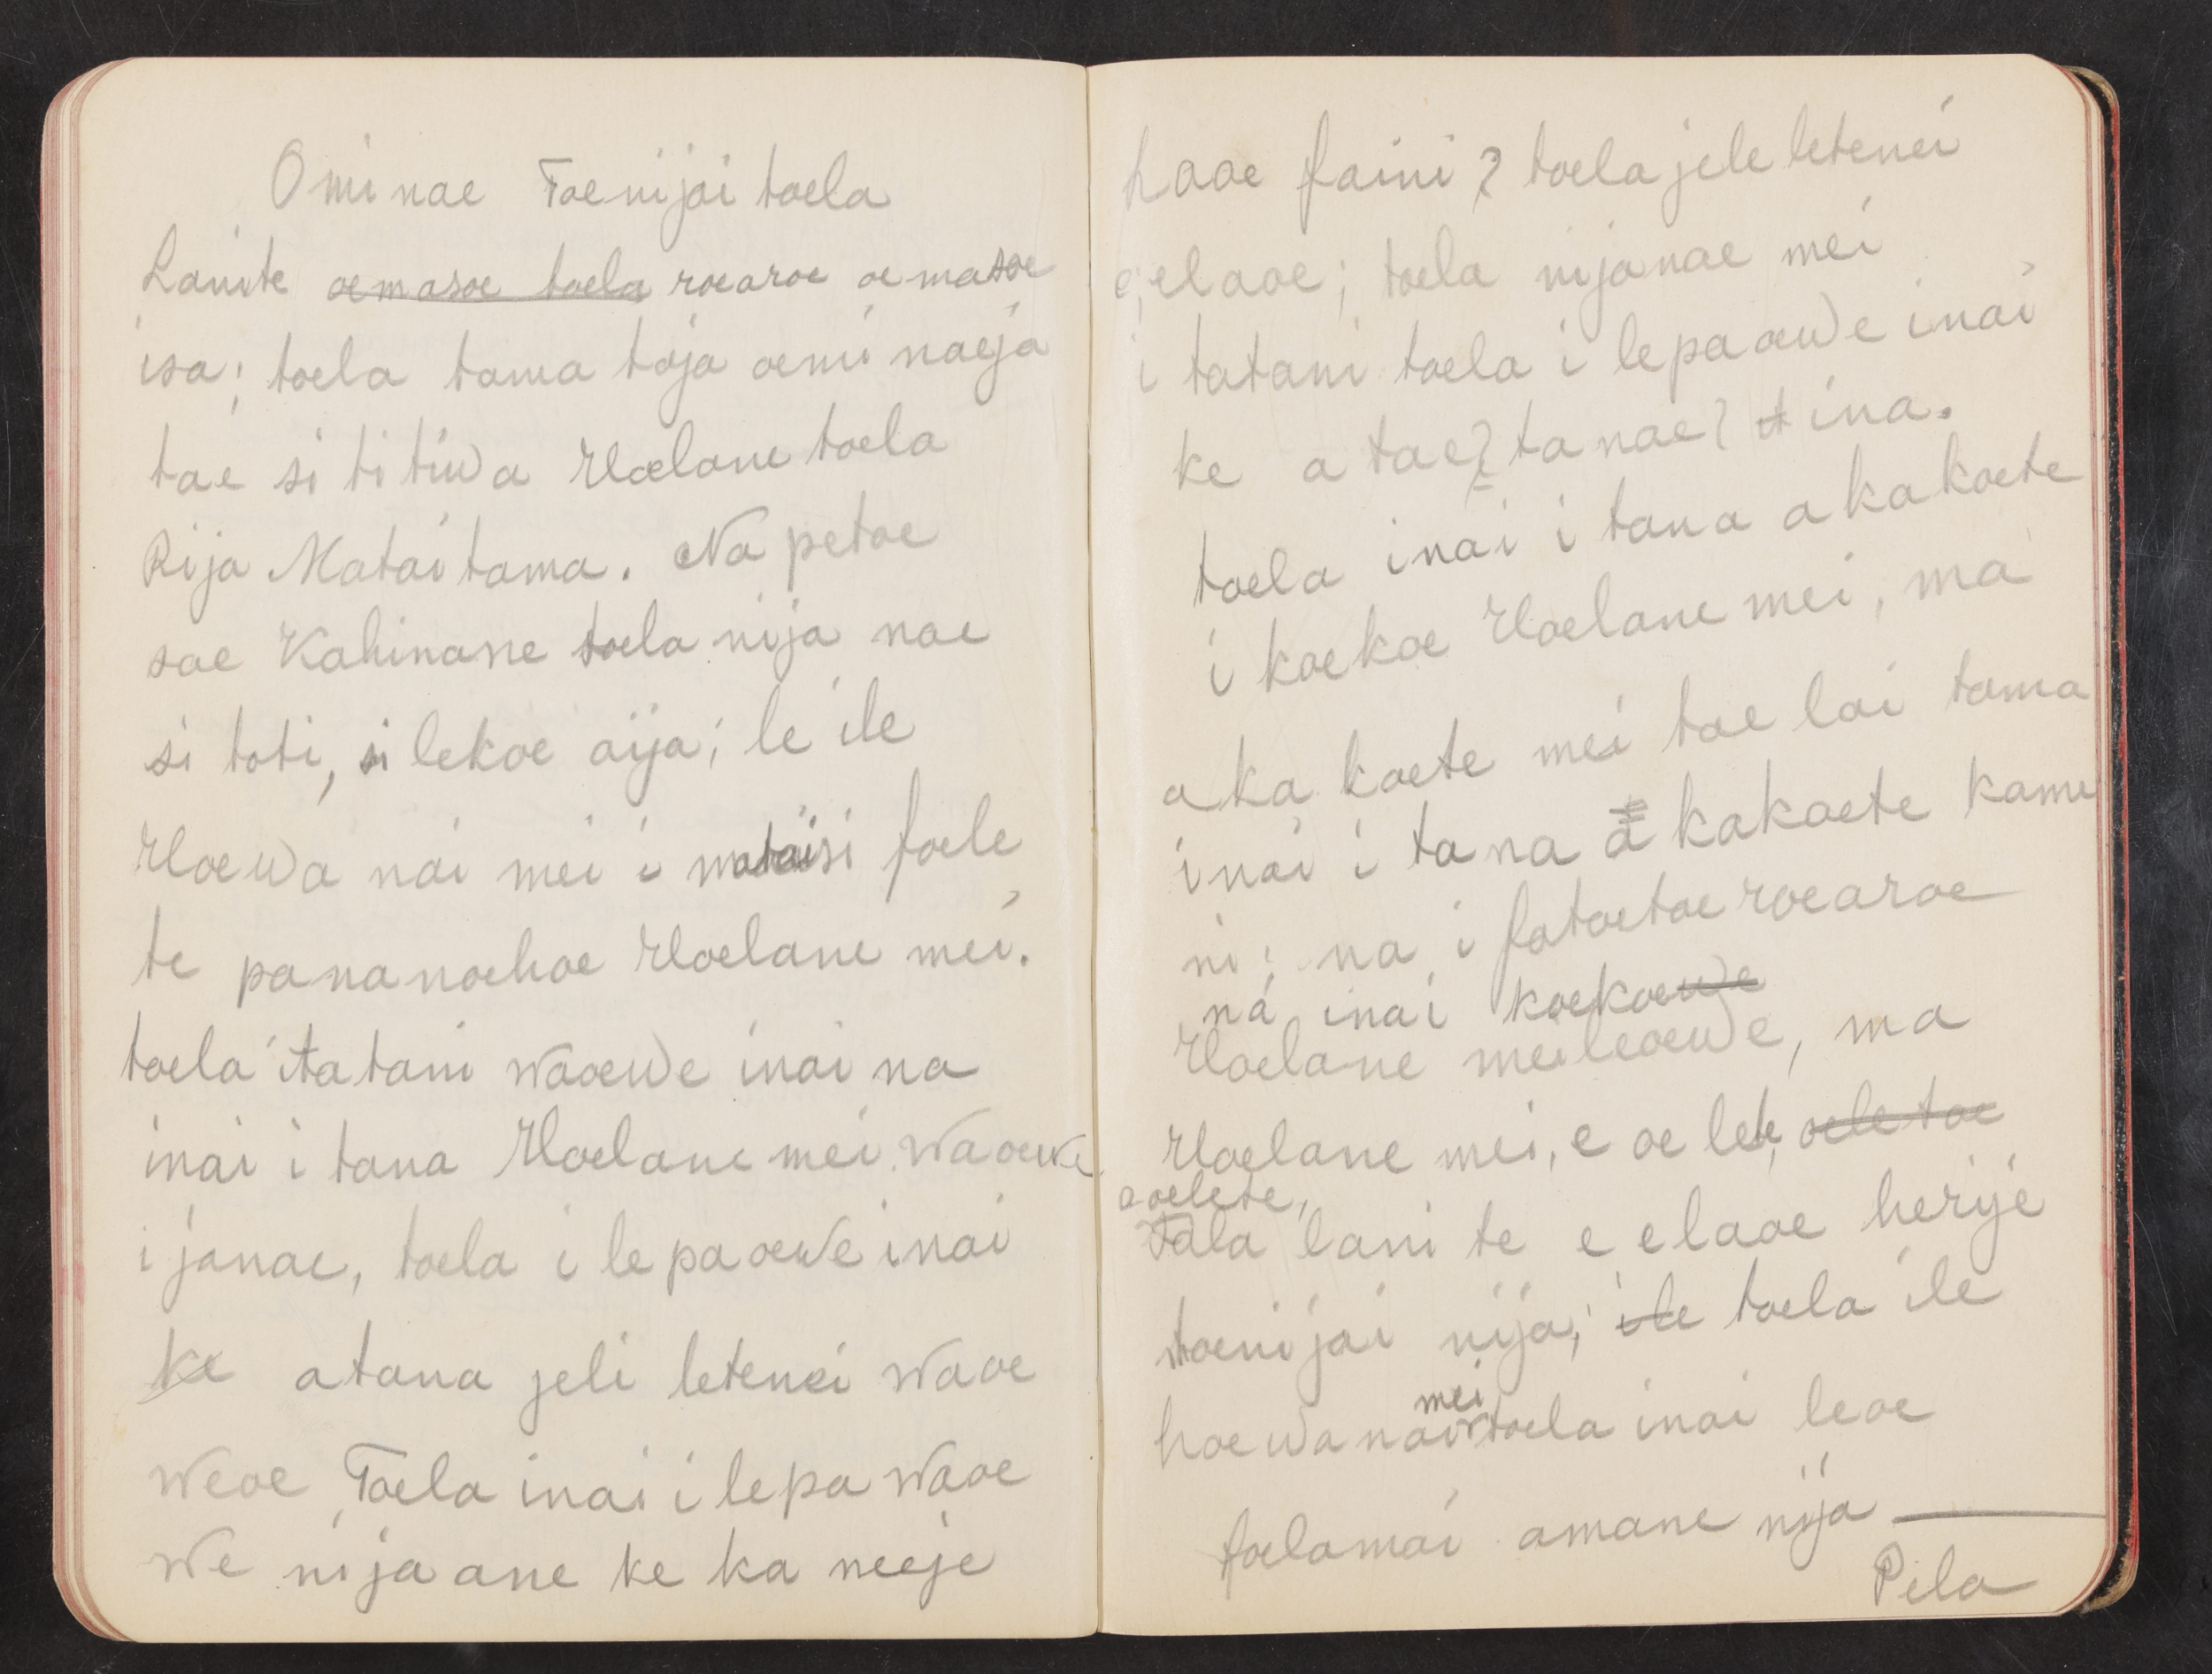 Omi nae Toenijai toela
Lanite oemasoe toela roearoe oemasoe
isa; toela tama taja oemi naeja
tae si titiwa Hoelane toela
Rija Matai tama. Na petoe
sae Kahinane toela nija nae
si toti, si lekoe aija; le ile
Hoewa nai mei i mataisi foele
te pananoehoe Hoelane mei.
toela itatani waoewe inai na
inai i tana Hoelane mei waoewe
ijanae, toela i lepaoewe inai
ke atana jeli letenei waoe
weoe Toela inai i lepa waoe
we nija ane ke ka neeje
haoe faini? toela jele letenei
e, elaoe; toela nijanae mei
i tatani toela i lepaoewe inai
ke a tae? ta nae? t ina.
toela inai i tana akakoete
i koekoe Hoelane mei, ma
aka koete mei tae lai tama
inai i tana akakoete kame
ni; na i fatoetoe roearoe
na inai koekoewe
Hoelane meileoewe, ma
Hoelane mei, e oe lete, oele toe
aoelete,
Tala lani te e elaoe herije
toenijai nija; ile toela ile
mei
hoewanai toela inai leoe
foelamai amane nija
Pela